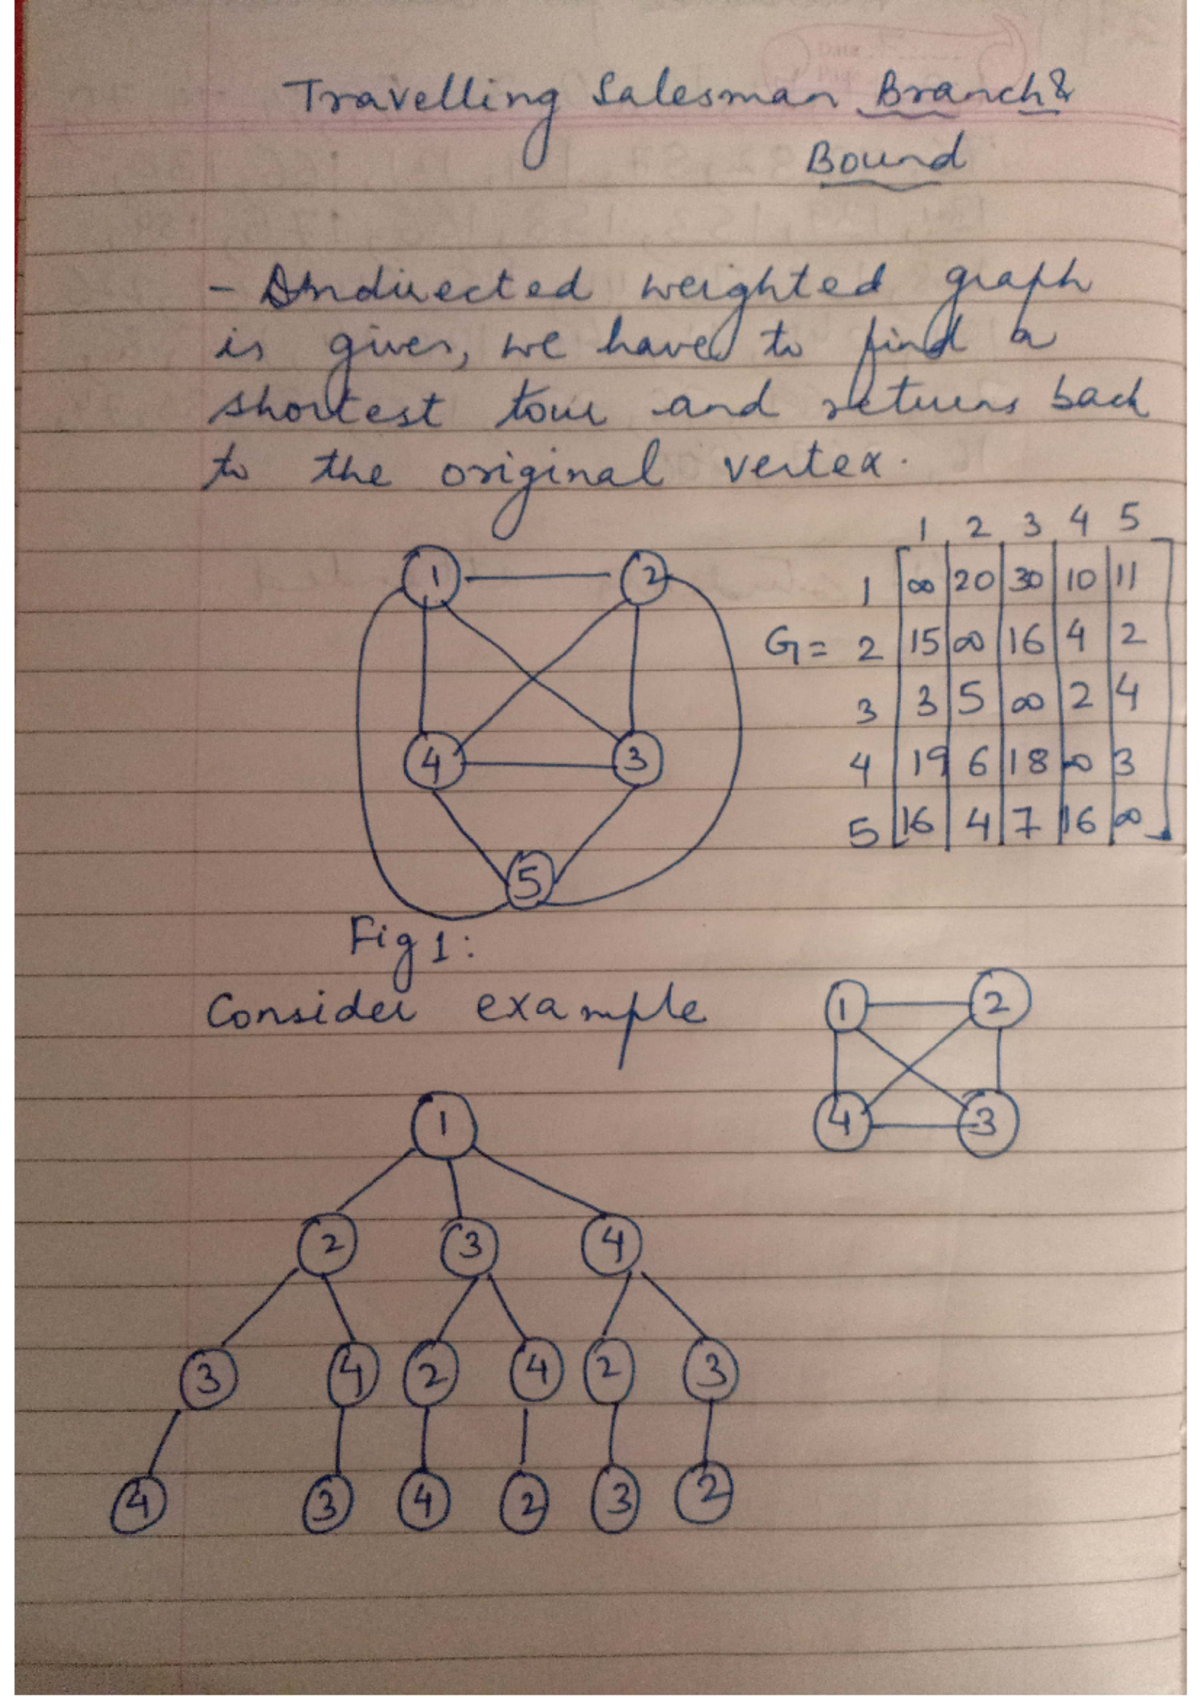 Travelling Salesman Branch &
Bound
- Undirected weighted graph
is given, we have to find a
shortest tour and returns back
to the original vertex.
1 2 3 4 5
1 ∞ 20 30 10 11
G = 2 15 ∞ 16 4 2
3 3 5 ∞ 2 4
4 19 6 18 ∞ 3
5 16 4 7 16 ∞
1 2
4 3
5
Fig 1:
Consider example
1 2
4 3
1
2 3 4
3 4 2 4 2 3
4 3 4 2 3 2